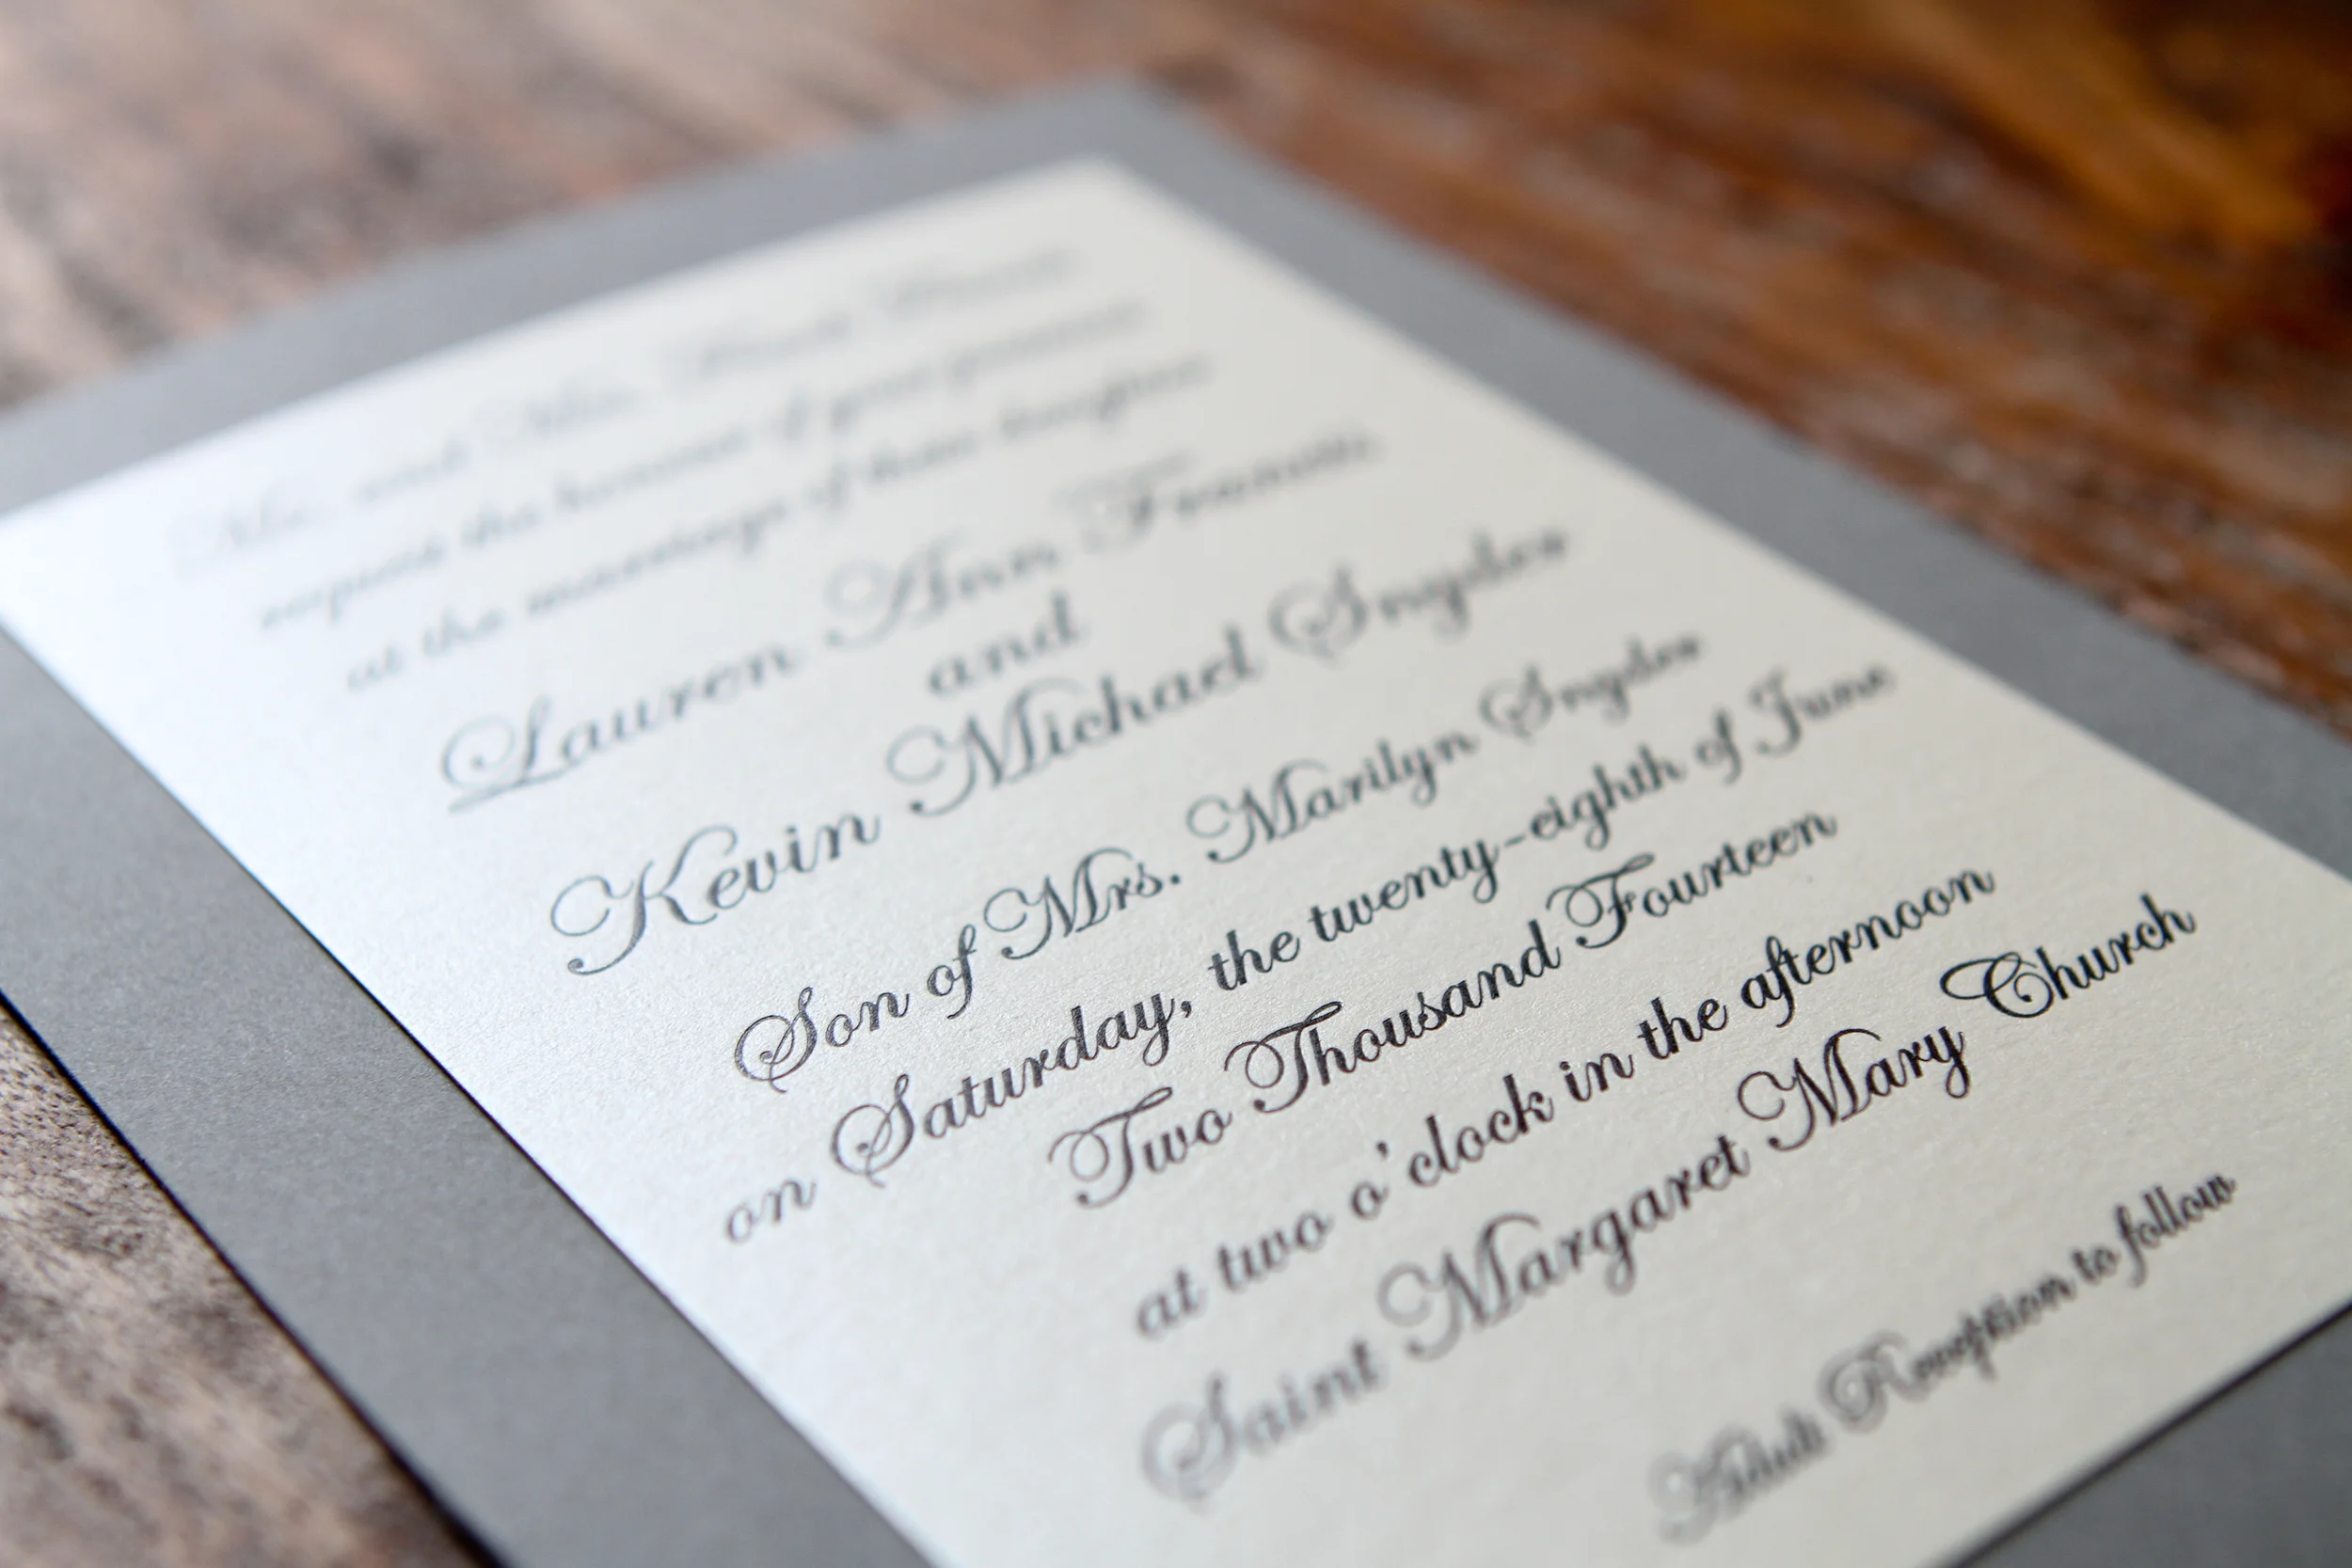 Mr. and Mrs.
request the honour of your presence
at the marriage of their daughter
Lauren Ann
and
Kevin Michael Snyder
Son of Mrs. Marilyn Snyder
on Saturday, the twenty-eighth of June
Two Thousand Fourteen
at two o'clock in the afternoon
Saint Margaret Mary Church
Adult Reception to follow